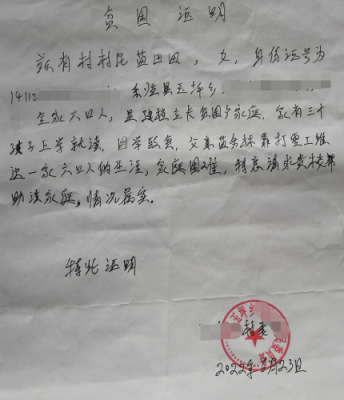 贫困证明
兹有村村民黄田田，女，身份证号为
14112
全家六口人，是建档立卡贫困户家庭，家有三个
孩子上学就读，因学致贫，父亲黄 靠打零工维
这一家六口人的生活，家庭困难，特恳请求贵校帮
助该家庭，情况属实。
特此证明
村委
2022年 月23日